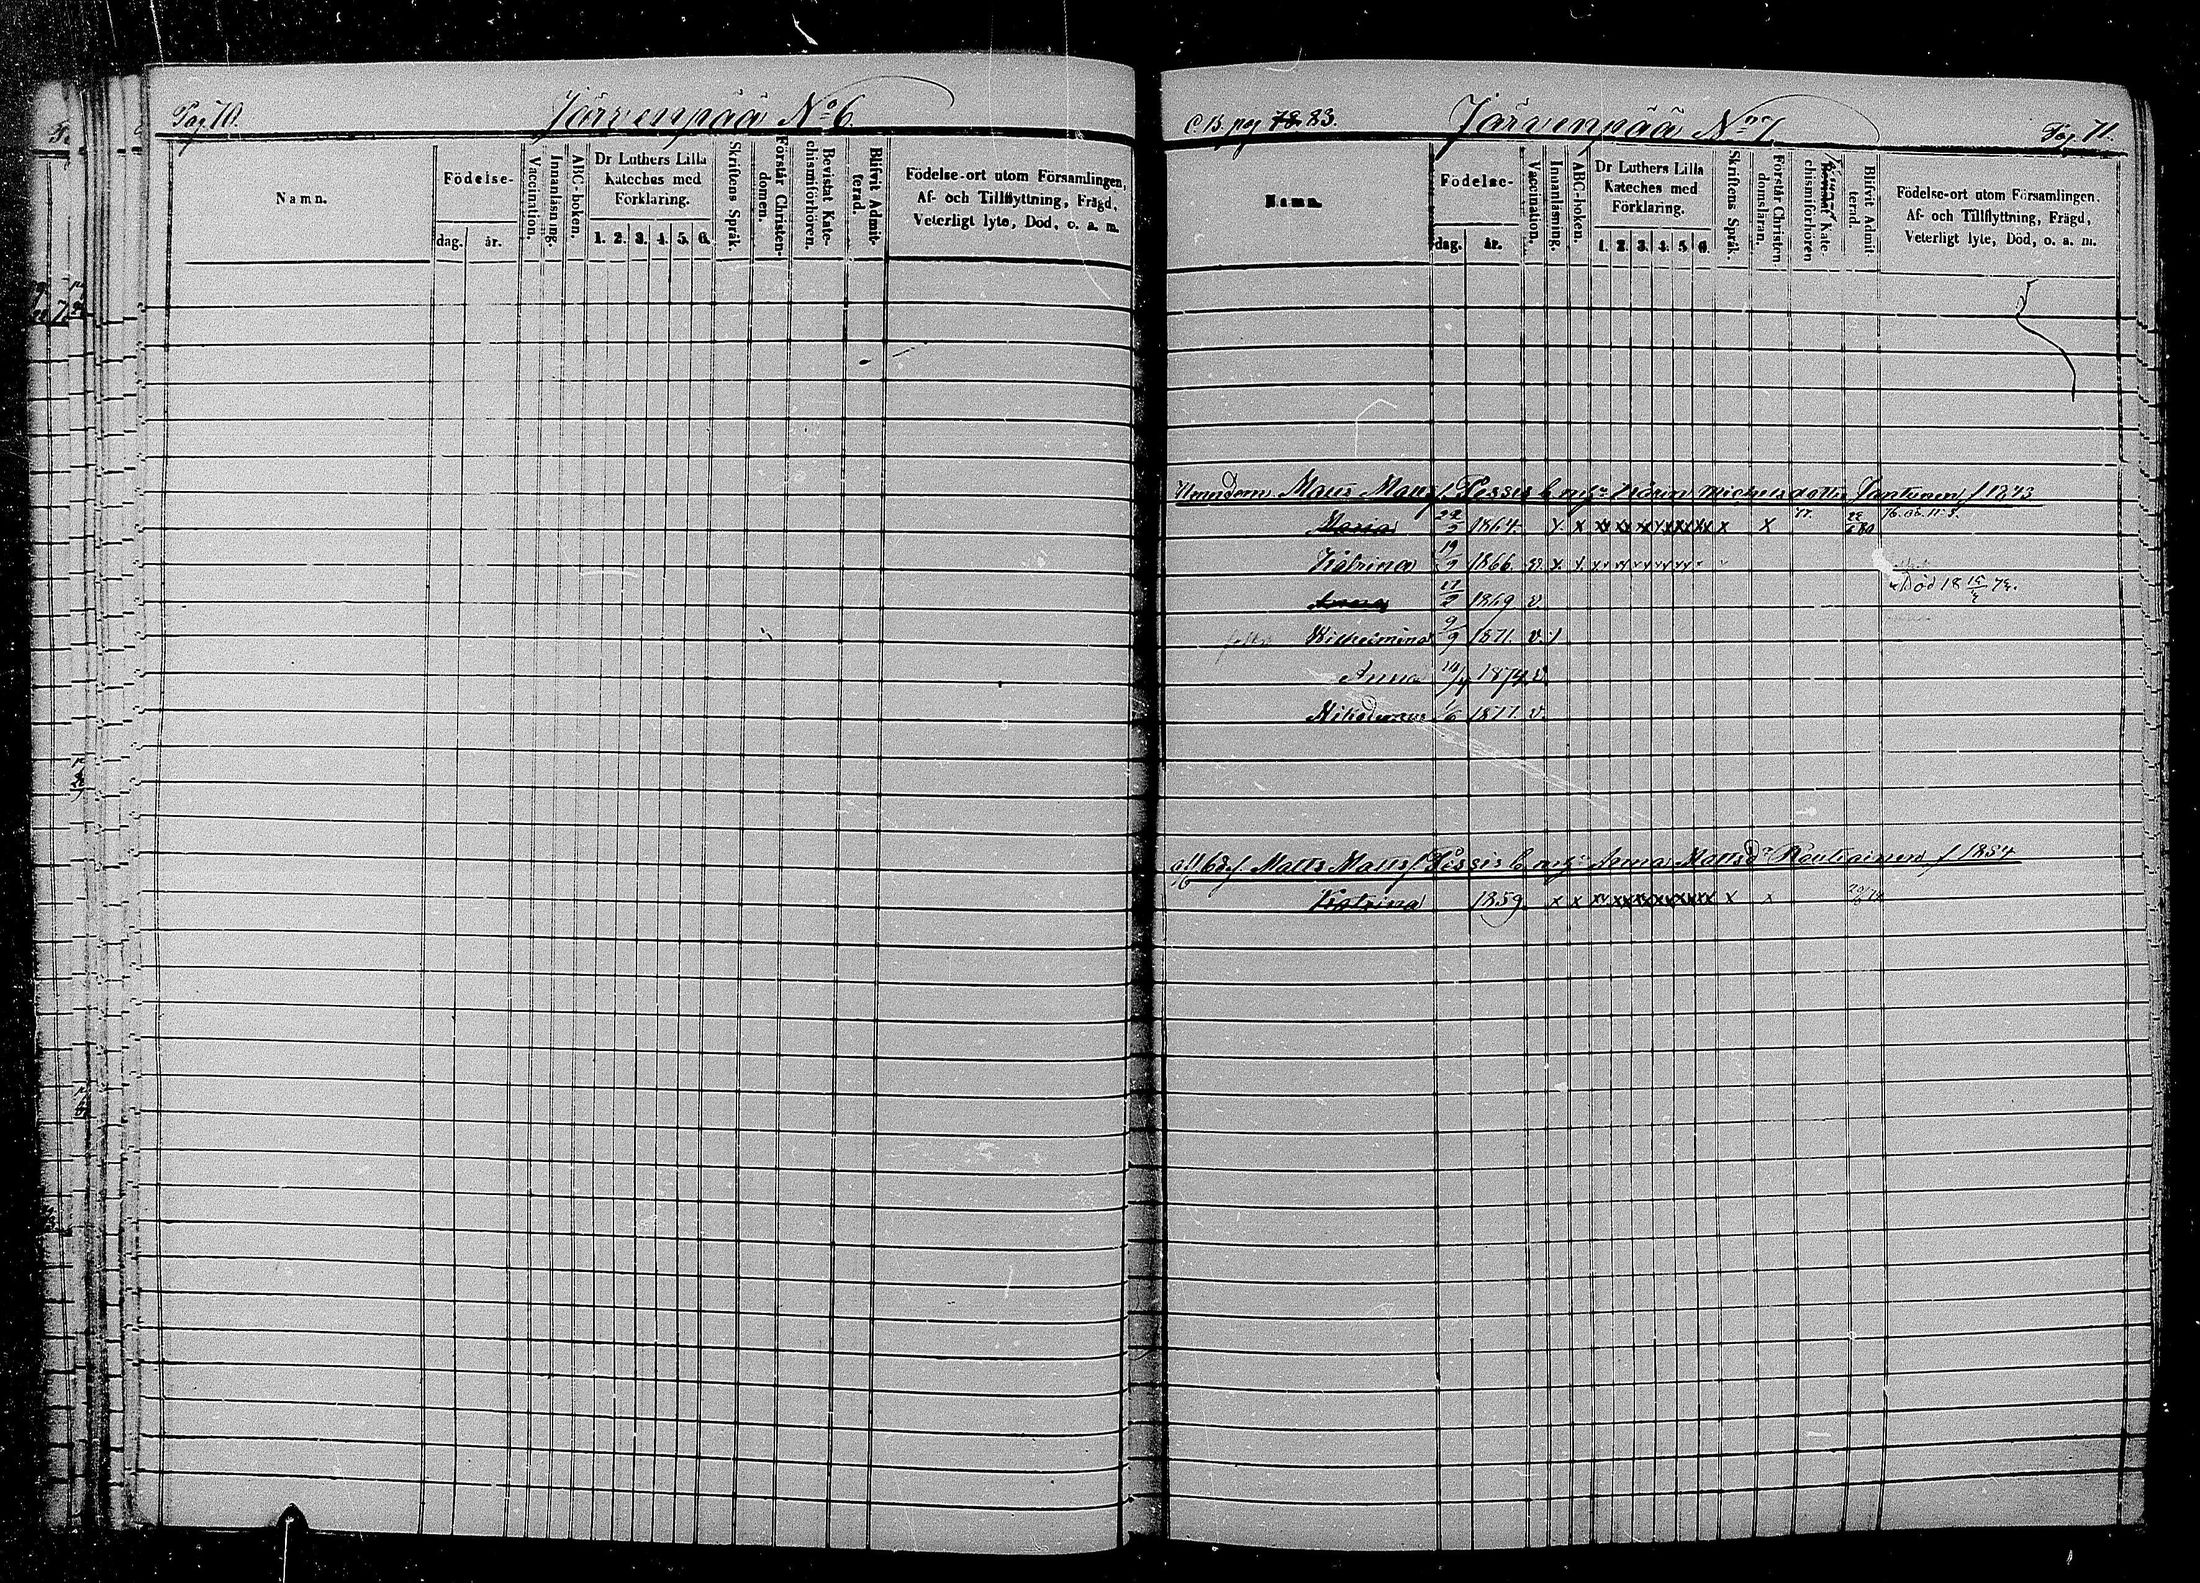 Pag 70.
Järvenpää No 6
Namn.
Födelse-
dag. år.
Vaccination.
Innanläsning.
ABC-boken.
Dr Luthers Lilla Kateches med Förklaring.
1. 2. 3. 4. 5. 6.
Skriftens Språk.
Förstår Christendomen.
Bevistat Katechismiförhören.
Blifvit Admitterad.
Födelse-ort utom Församlingen,
Af- och Tillflyttning, Frägd,
Veterligt lyte, Död, o. a. m.
C B. pag 78 83.
Järvenpää No 7
Pag. 71.
Namn.
Födelse-
dag. år.
Vaccination.
Innanläsning.
ABC-boken.
Dr Luthers Lilla Kateches med Förklaring.
1. 2. 3. 4. 5. 6.
Skriftens Språk.
Förstår Christendomsläran.
Katechismiförhören
Blifvit Admitterad.
Födelse-ort utom Församlingen.
Af- och Tillflyttning, Frägd,
Veterligt lyte, Död, o. a. m.
Matts Matts f. Michelsdotter f 1843
Maria 1864. x x xx xx xx xx xx xx x x 77.
Katrina 19/2 1866 v. x x
Död 18 15/5 74.
Anna 1869 v.
Wilhelmina 9/9 1871. v.
Anna 1874 v.
Nikodemus 1/6 1877. v.
Matts Matts f. Anna Mattsdr Rautiainen f 1854
Katrina 1859. x x xx xx xx xx xx xx x x